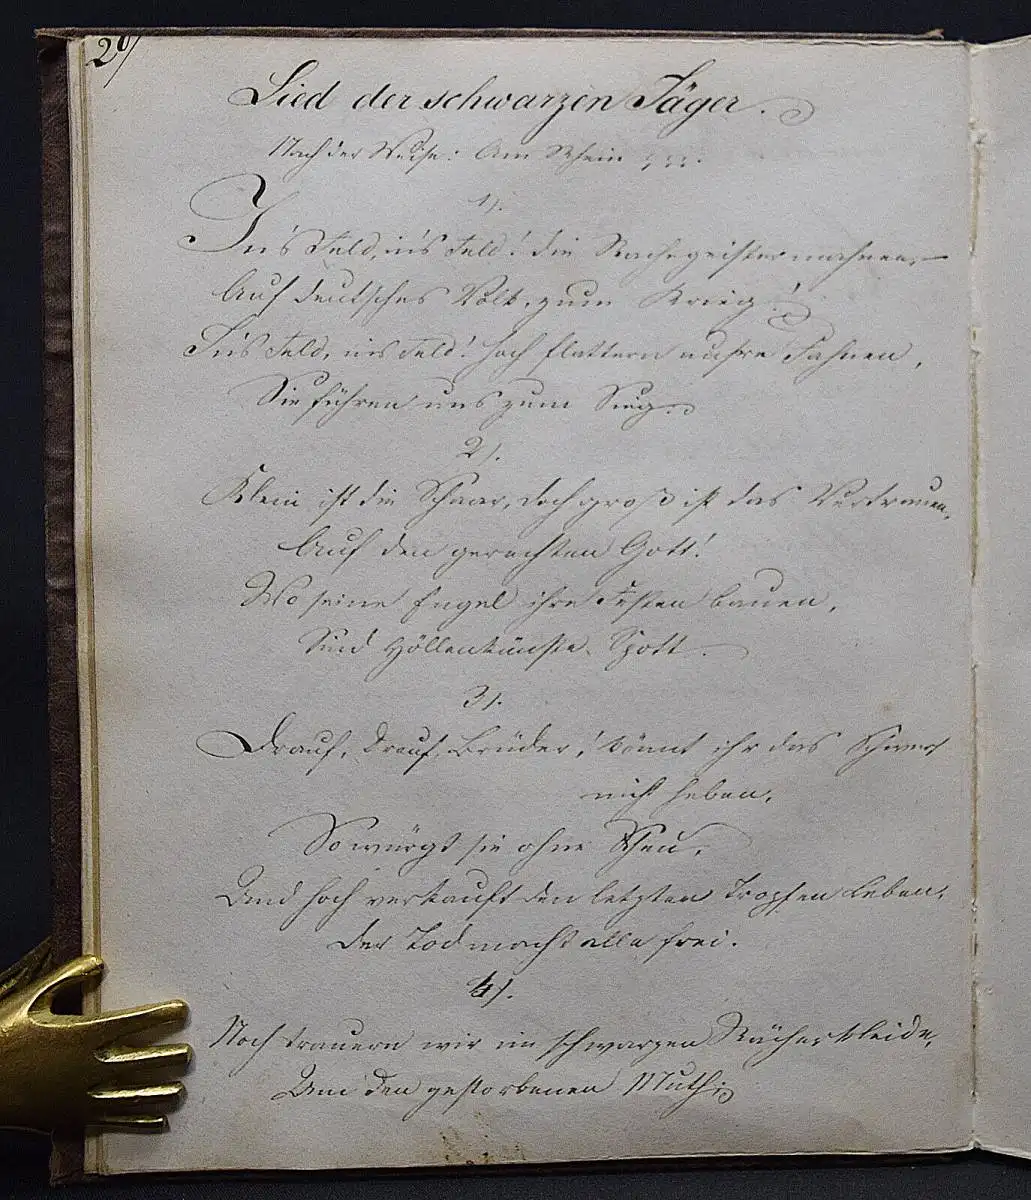 20/
Lied der schwarzen Jäger.
Nach der Weise: Am Rhein ; ; ; ;.
1).
In's Feld, in's Feld! die Rachegeister mahnen,
Auf deutsches Volk, zum Krieg!
In's Feld, in's Feld! hoch flattern unsre Fahnen,
Sie führen uns zum Sieg.
2).
Klein ist die Schaar, doch groß ist das Vertrauen,
Auf den gerechten Gott!
Wo seine Engel ihre Festen bauen,
Sind Höllenkünste Spott.
3).
Drauf, Drauf, Brüder! könnt ihr das Schwert
nicht heben,
So würgt sie ohne Scheu,
Und hoch verkauft den letzten Tropfen Leben,
Der Tod macht alle frei.
4).
Noch trauern wir im schwarzen Rächerkleide,
Um den gestorbenen Muth;